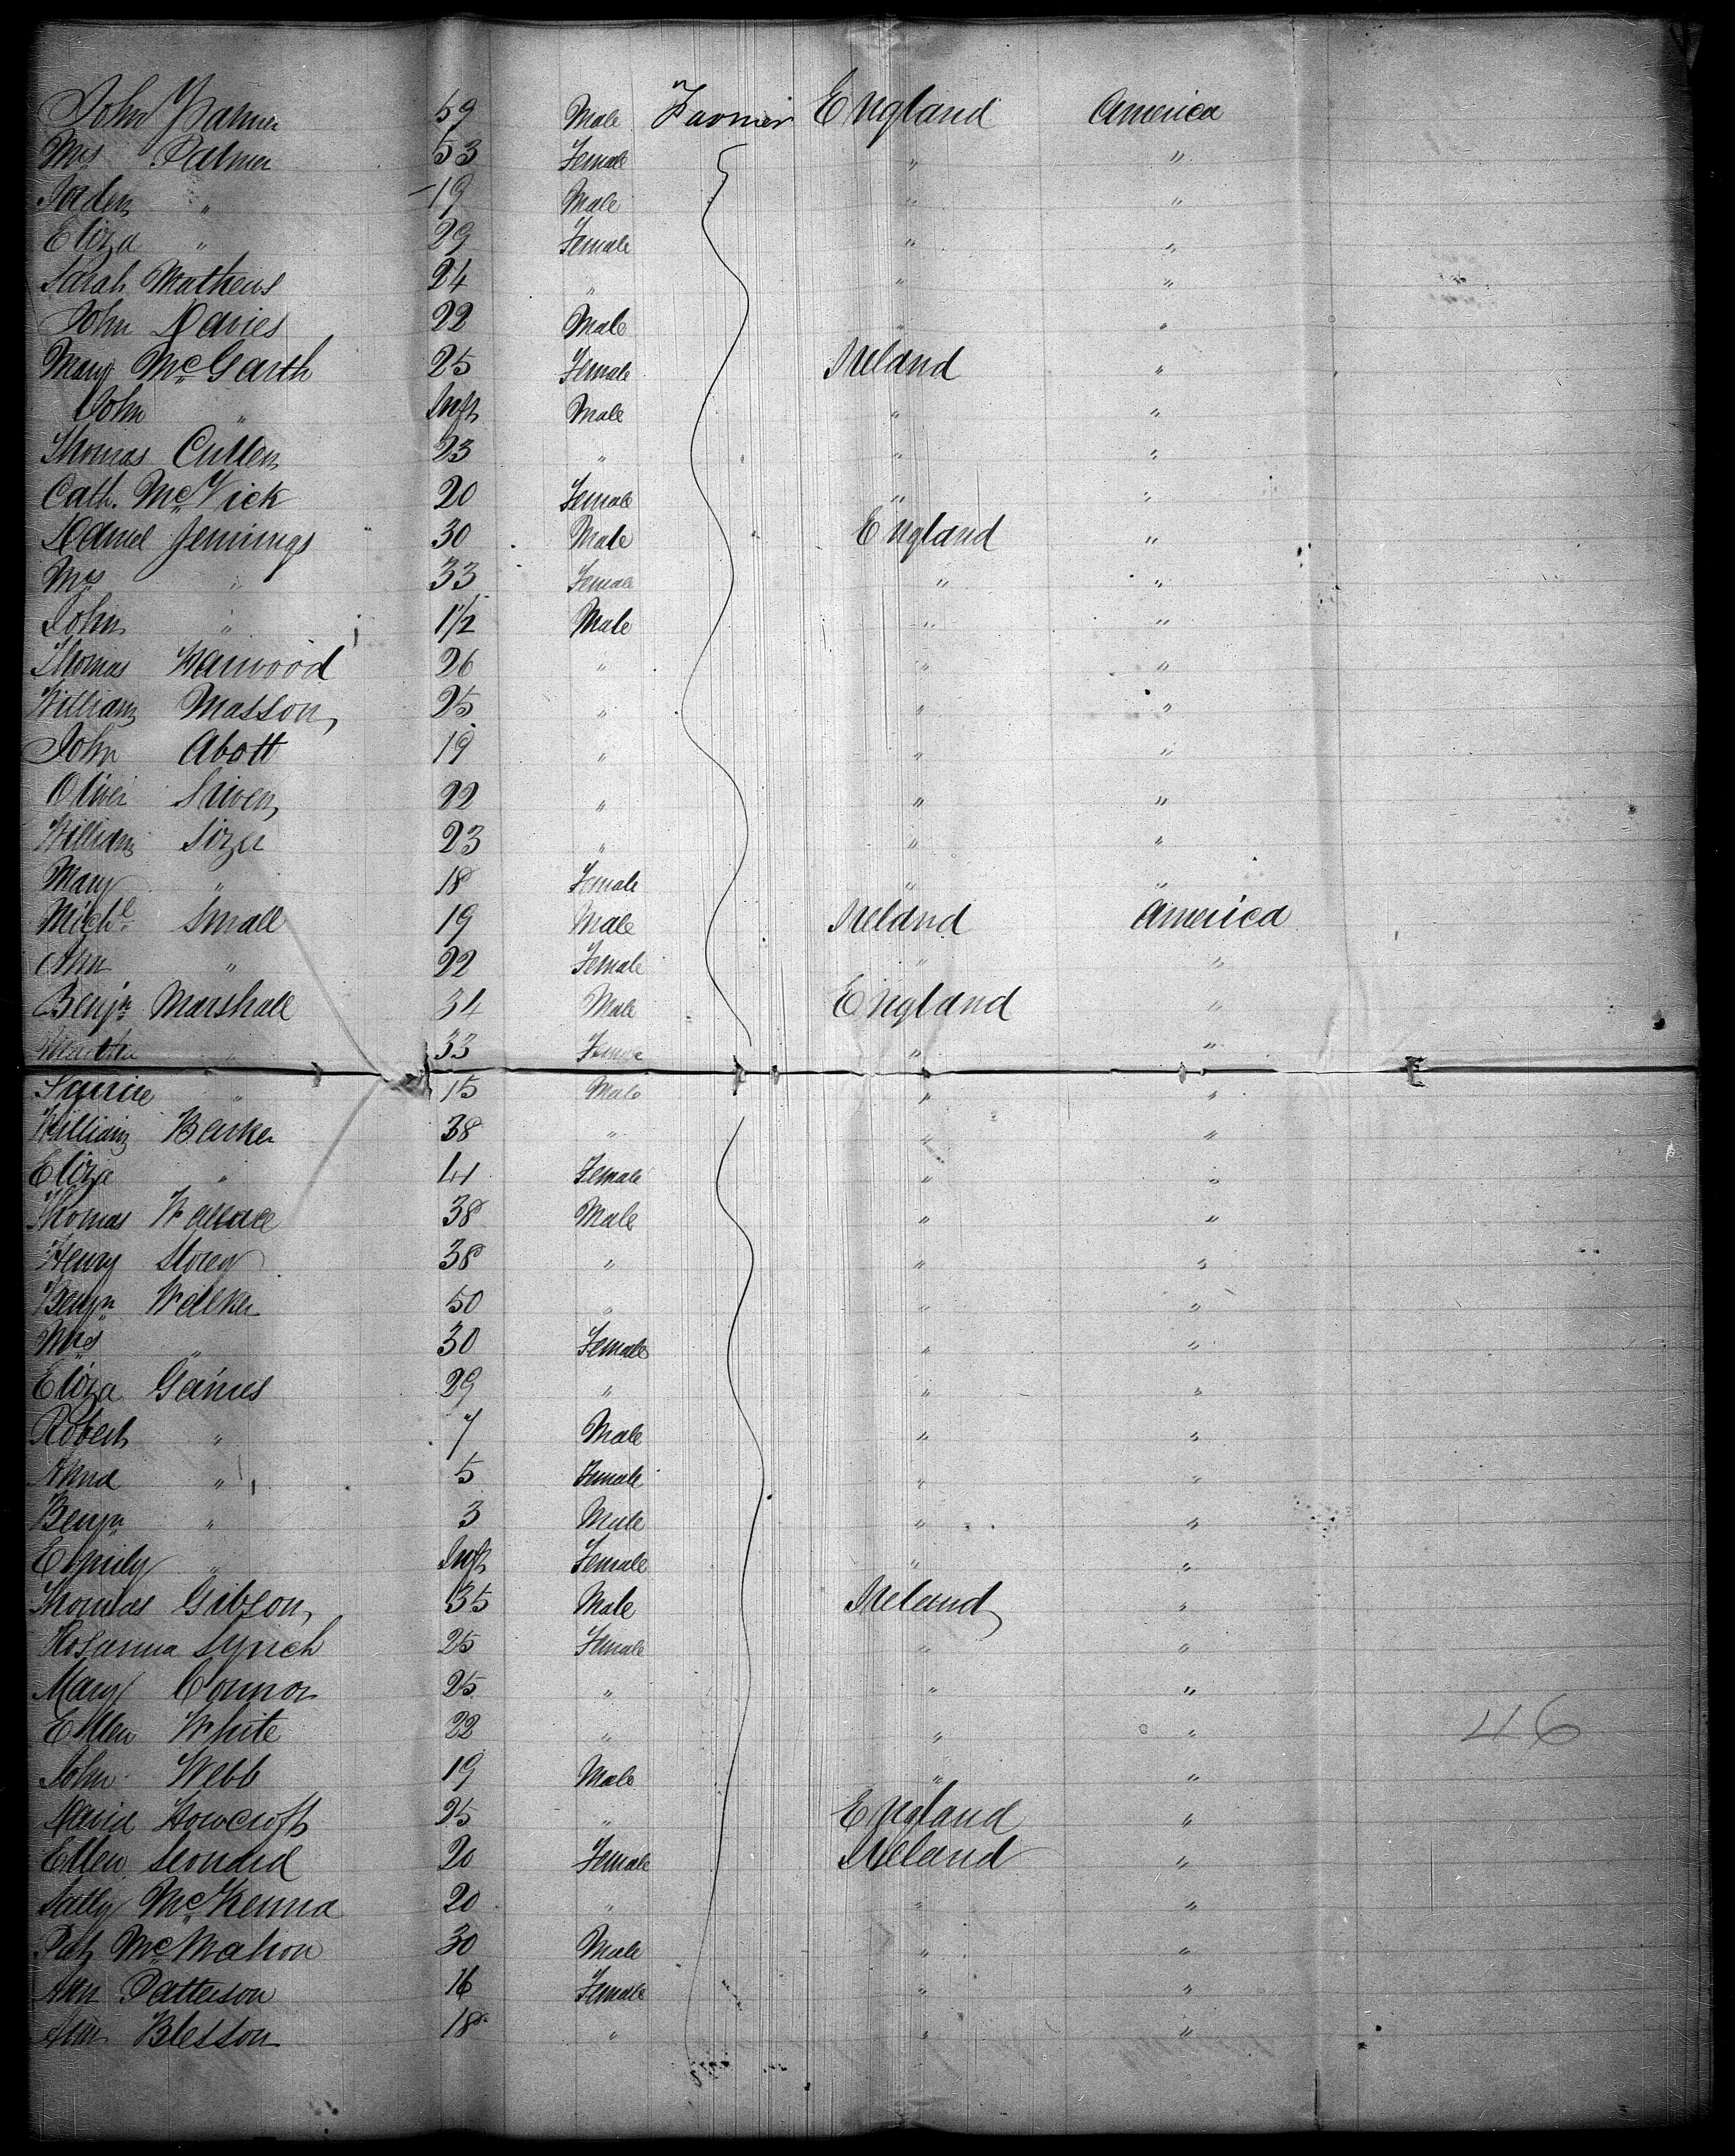 John Palmer 59 Male Farmer England America
Mrs Palmer 53 Female " "
" 19 Male " "
Eliza " 29 Female " "
Sarah Mathews 24 " " "
John Davies 22 Male " "
Mary McGarth 25 Female Ireland "
John " Inft Male " "
Thomas Cullen 23 " " "
Cath. McVick 20 Female " "
Daniel Jennings 30 Male England "
Mrs " 33 Female " "
John " 1 1/2 Male " "
Thomas Harwood 26 " " "
William Masson 25 " " "
John Abott 19 " " "
Oliver 22 " " "
William Sizer 23 " " "
Mary " 18 Female " "
Michl Small 19 Male Ireland America
Ann " 22 Female " "
Benjn Marshall 34 Male England "
Martha " 33 Female " "
Squire " 15 Male " "
William Barker 38 " " "
Eliza " 41 Female " "
Thomas Wallace 38 Male " "
Henry Storey 38 " " "
Benjn Walker 50 " " "
Mrs " 30 Female " "
Eliza Gaines 29 " " "
Robert " 7 Male " "
Anna " 5 Female " "
Benjn " 3 Male " "
Emily " Inft Female " "
Thomas Gibson 35 Male Ireland "
Rosanna Lynch 25 Female " "
Mary Connor 25 " " "
Ellen White 22 " " " 46
John Webb 19 Male " "
David Howcroft 25 " England "
Ellen Leonard 20 Female Ireland "
Sally McKenna 20 " " "
Pat McMahon 30 Male " "
Ann Patterson 16 Female " "
Ann Blesson 18 " " "